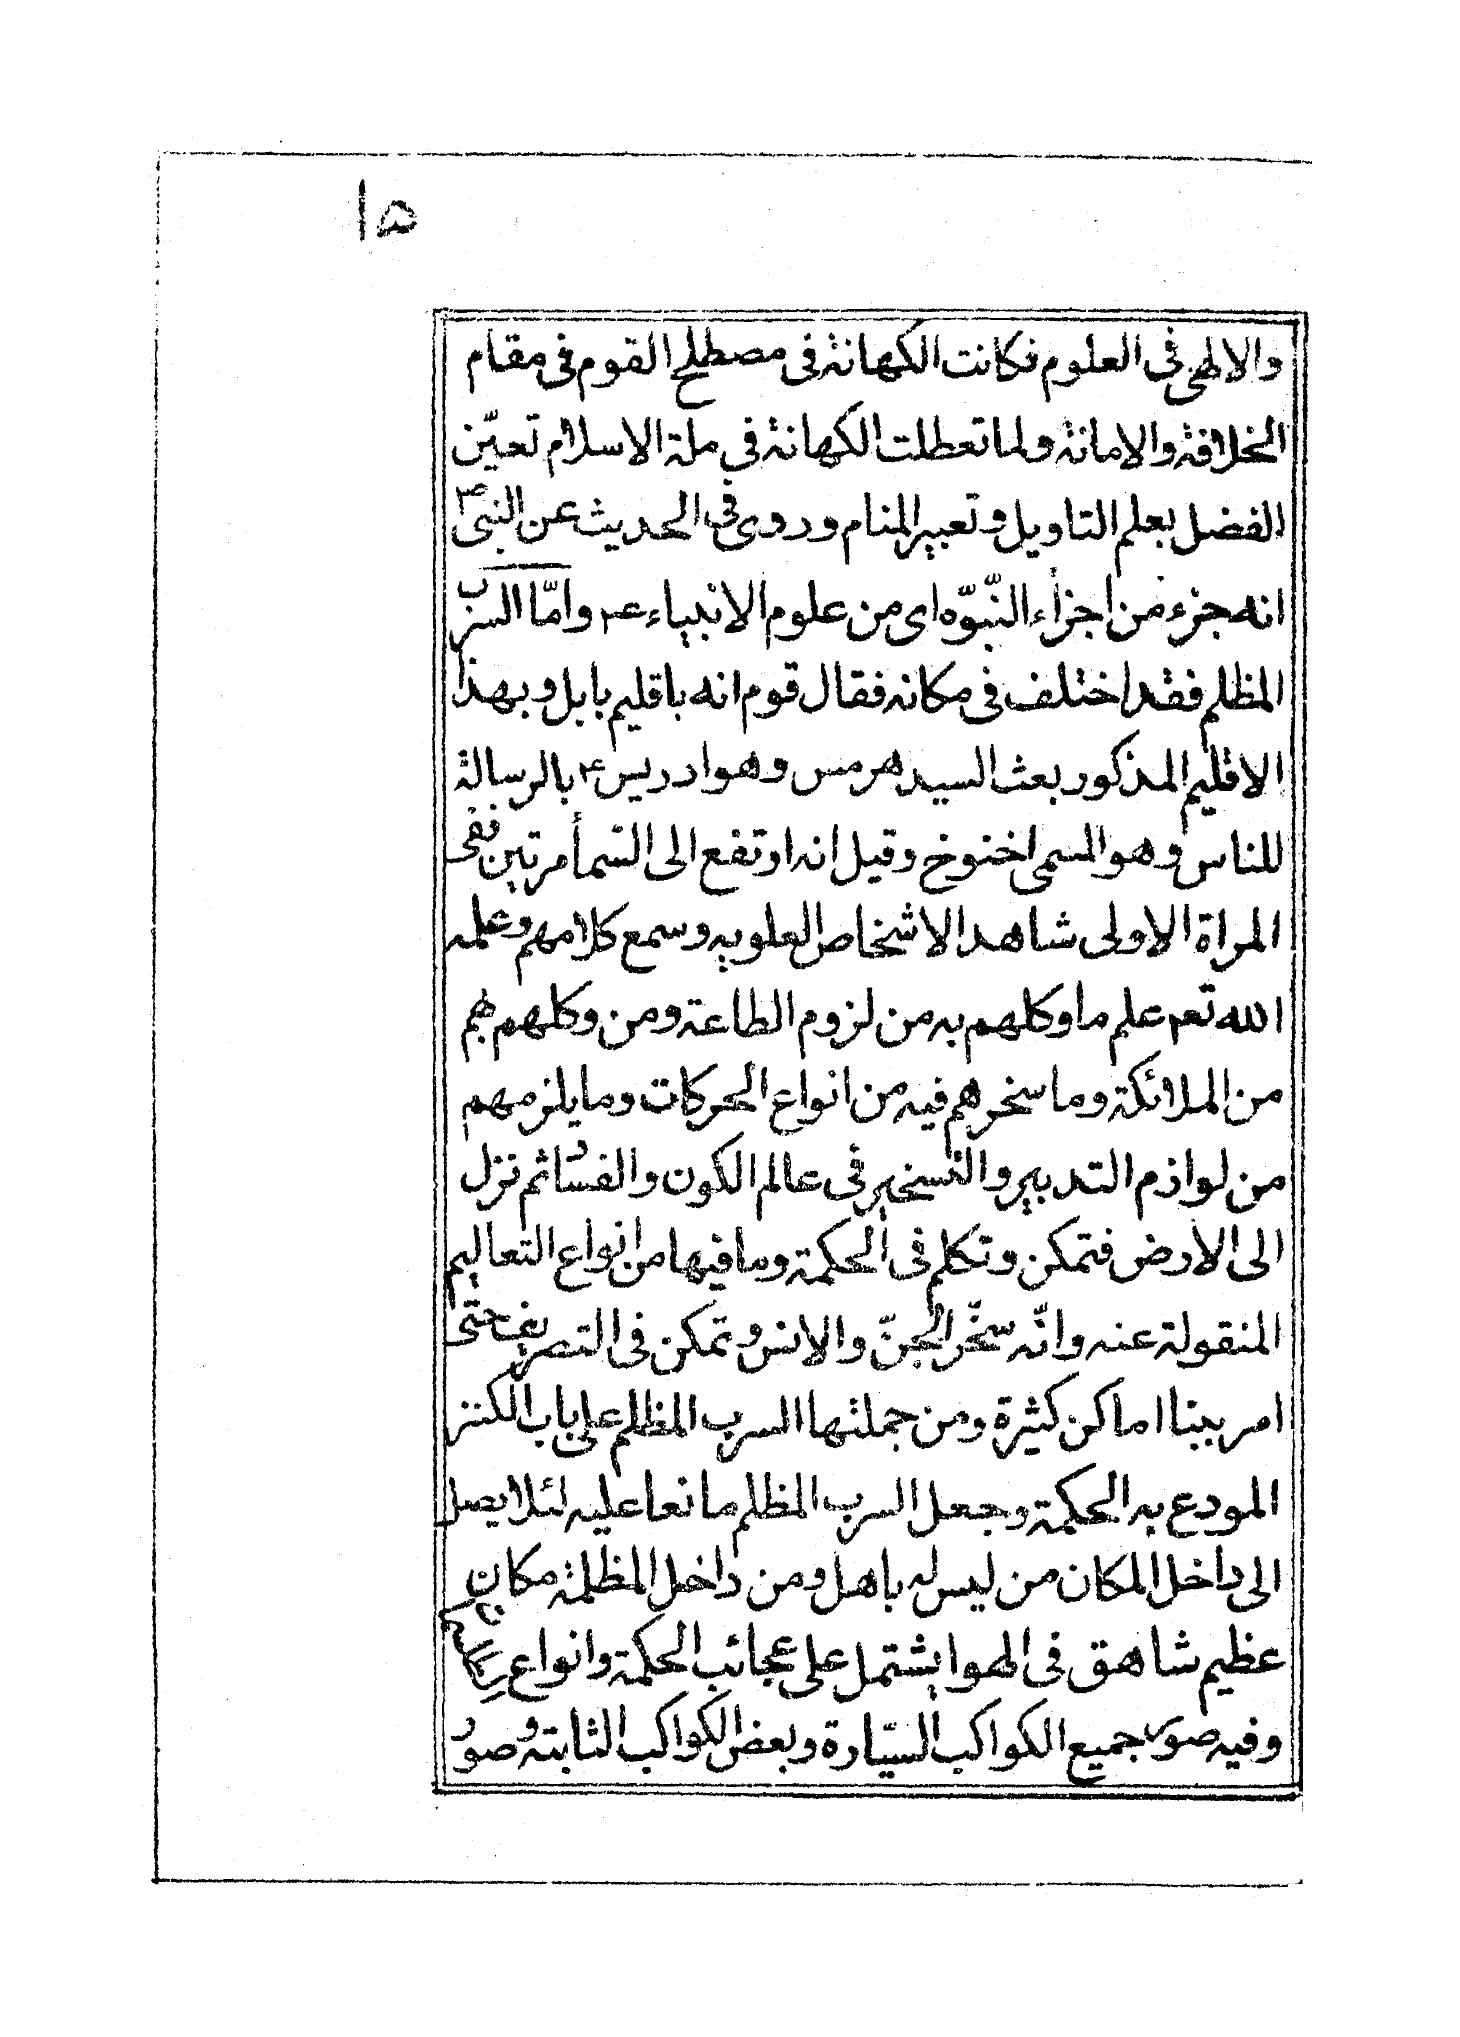 ۱۵
والالهی فی العلوم فکانت الکهانة فی مصطلح القوم فی مقام
الخلافة والامانة ولما تعطلت الکهانة فی ملة الاسلام تعیّن
الفضل بعلم التاویل وتعبیر المنام وروی فی الحدیث عن النبی ص
انه جزء من اجزاء النبّوّه ای من علوم الانبیاء ع م وامّا السرب
المظلم فقد اختلف فی مکانه فقال قوم انه باقلیم بابل وبهذا
الاقلیم المذکور بعث السید هرمس وهو ادریس ع بالرسالة
للناس وهو المسمی اخنوخ وقیل انه ارتفع الی السّمأ مرتین ففی
المراة الاولی شاهد الاشخاص العلویه وسمع کلامهم وعلمه
الله تعم علم ما وکلهم به من لزوم الطاعة ومن وکلهم بهم
من الملائکة وما سخرهم فیه من انواع الحرکات وما یلزمهم
من لوازم التدبیر والتسخیر فی عالم الکون والفساد ثم نزل
الی الارض فتمکن وتکلم فی الحکمة وما فیها من انواع التعالیم
المنقولة عنه وانّه سخّر الجنّ والانس وتمکن فی التصریف حتی
امر ببنا اماکن کثیرة ومن جملتها السرب المظلم علی باب الکنز
المودع به الحکمة وجعل السرب المظلم مانعا علیه لئلا یصل
الی داخل المکان من لیس له باهل ومن داخل المظلمة مکان
عظیم شاهق فی الهوا یشتمل علی عجائب الحکمة وانواع
وفیه صور جمیع الکواکب السیّارة وبعض الکواکب الثابتة وصور